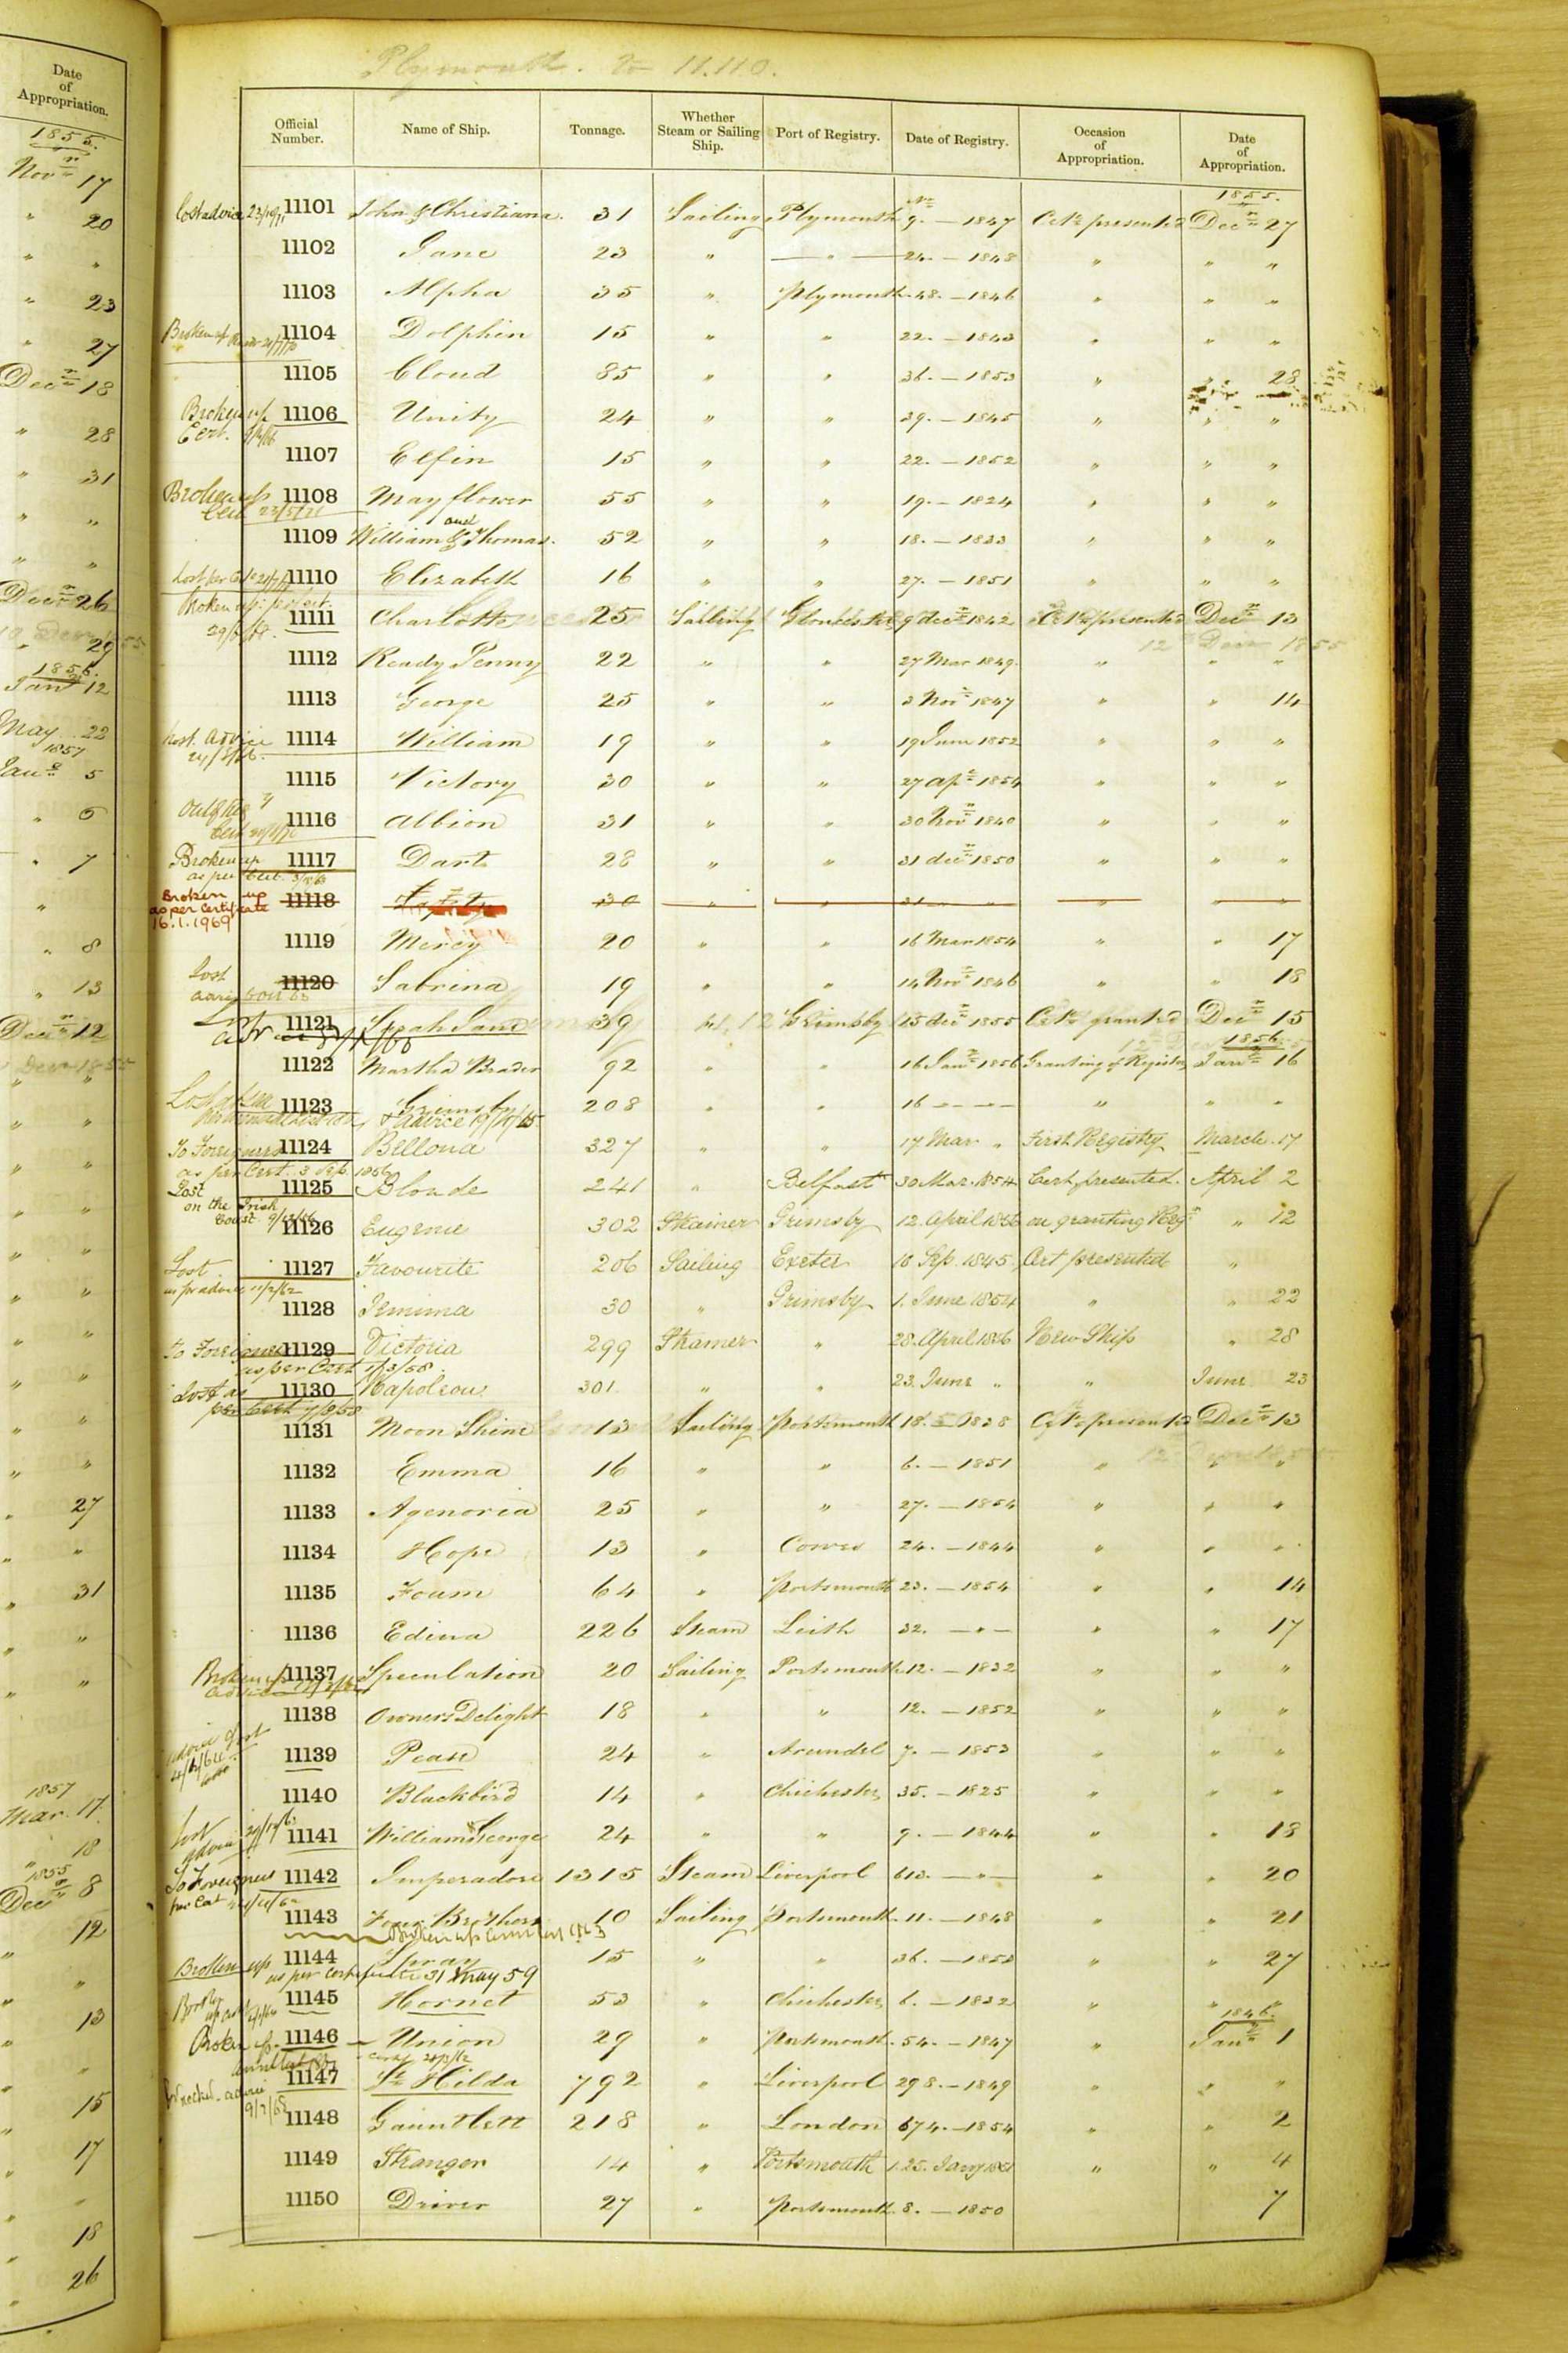 Date
of
Appropriation.
1855.
Novr 17
" 20
" "
" 23
" 27
Decr 18
" 28
" 31
" "
" "
Decr 26
" 29
1856.
Jany 12
May 22
1857
Jany 5
" 6
" 7
"
" 8
" 13
Decr 12
" "
" "
" "
" "
" "
" "
" "
" "
" "
" "
" 27
" "
" 31
" "
" "
1857
Mar. 17
" 18
1855
Decr 8
" 12
" "
" 13
" "
" 15
" 17
"
" 18
" 26
Plymouth. to 11.110.
Official Number. Name of Ship. Tonnage. Whether Steam or Sailing Ship. Port of Registry. Date of Registry. Occasion of Appropriation. Date of Appropriation.
1855.
Lost advice 11101 John & Christiana. 31 Sailing Plymouth No 9. — 1847 Certe presented Decr 27
11102 Jane 23 " — " — 24. — 1848 " " "
11103 Alpha 35 " Plymouth 48. — 1846 " " "
Broken up 11104 Dolphin 15 " " 22. — 1843 " " "
11105 Cloud 85 " " 36. — 1853 " " 28
Broken up 11106 Unity 24 " " 39. — 1845 " " "
Cert.
11107 Elfin 15 " " 22. — 1852 " " "
Broken up 11108 Mayflower 55 " " 19. — 1824 " " "
11109 William and Thomas. 52 " " 18. — 1833 " " "
11110 Elizabeth 16 " " 27. — 1851 " " "
Broken up
11111 Charlotte 25 Sailing Gloucester 9 Decr 1842 Certe presented Decr 13
12 Decr 1855
11112 Ready Penny 22 " " 27 Mar 1849. " " "
11113 George 25 " " 3 Novr 1847 " " 14
Lost. Advice 11114 William 19 " " 19 June 1852 " " "
11115 Victory 30 " " 27 Apl 1854 " " "
11116 Albion 31 " " 30 Novr 1840 " " "
Broken up 11117 Dart 28 " " 31 Decr 1850 " " "
as per Cert.
Broken up
as per Certificate 11118 30 " " 31 " " " "
16.1.1969
11119 Mercy 20 " " 16 Mar 1854 " " 17
Lost 11120 Sabrina 19 " " 14 Novr 1846 " " 18
11121 Sarah Jane 39 Grimsby 15 Decr 1855 Certe granted Decr 15
1856.
11122 Martha Brader 92 " " 16 Jany 1856 Granting of Register Jany 16
11123 Grimsby 208 " " 16 — " — " " "
To Foreigners 11124 Bellona 327 " " 17 Mar " First Registry March 17
as per Cert. 3 Sep 1856
Lost 11125 Blonde 241 " Belfast 30 Mar. 1854 Cert presented. April 2
on the Irish
Coast 11126 Eugenie 302 Steamer Grimsby 12. April 1856 on granting Regr " 12
Lost 11127 Favourite 206 Sailing Exeter 10 Sep. 1845 Cert presented "
as pr advice 11/2/62
11128 Jemima 30 " Grimsby 1. June 1854 " " 22
to Foreigners 11129 Victoria 299 Steamer " 28. April 1856 New Ship " 28
as per Cert 1/3/58.
Lost as 11130 Napoleon 301 " " 23. June " " June 23
per Cert
11131 Moon Shine 13 Sailing Portsmouth 18. — 1838 Certe presented Decr 13
11132 Emma 16 " " 6. — 1851 " " "
11133 Agenoria 25 " " 27. — 1854 " " "
11134 Hope 13 " Cowes 24. — 1844 " " "
11135 Foum 64 " Portsmouth 23. — 1854 " " 14
11136 Edina 226 Steam Leith 32. — " — " " 17
Broken up 11137 Speculation 20 Sailing Portsmouth 12. — 1832 " " "
11138 Owners Delight 18 " " 12. — 1852 " " "
advice Lost 11139 Pearl 24 " Arundel 7. — 1853 " " "
11140 Blackbird 14 " Chichester 35. — 1825 " " "
Lost
advice 11141 William & George 24 " " 9. — 1844 " " 18
To Foreigners 11142 Imperadore 1315 Steam Liverpool 613. — " — " " 20
per Cert
11143 Four Brothers 10 Sailing Portsmouth 11. — 1848 " " 21
Broken up
Broken up 11144 Spray 15 " " 36. — 1853 " " 27
as per Certificate 31 May 59
11145 Hornet 53 " Chichester 6. — 1832 " " "
1846.
Broken up. 11146 Union 29 " Portsmouth 54. — 1847 " Jany 1
11147 St Hilda 792 " Liverpool 298. — 1849 " " "
Wrecked. advice
11148 Gauntlett 218 " London 674. — 1854 " " 2
11149 Stranger 14 " Portsmouth 1. 25. Jany " " 4
11150 Driver 27 " Portsmouth 8. — 1850 7